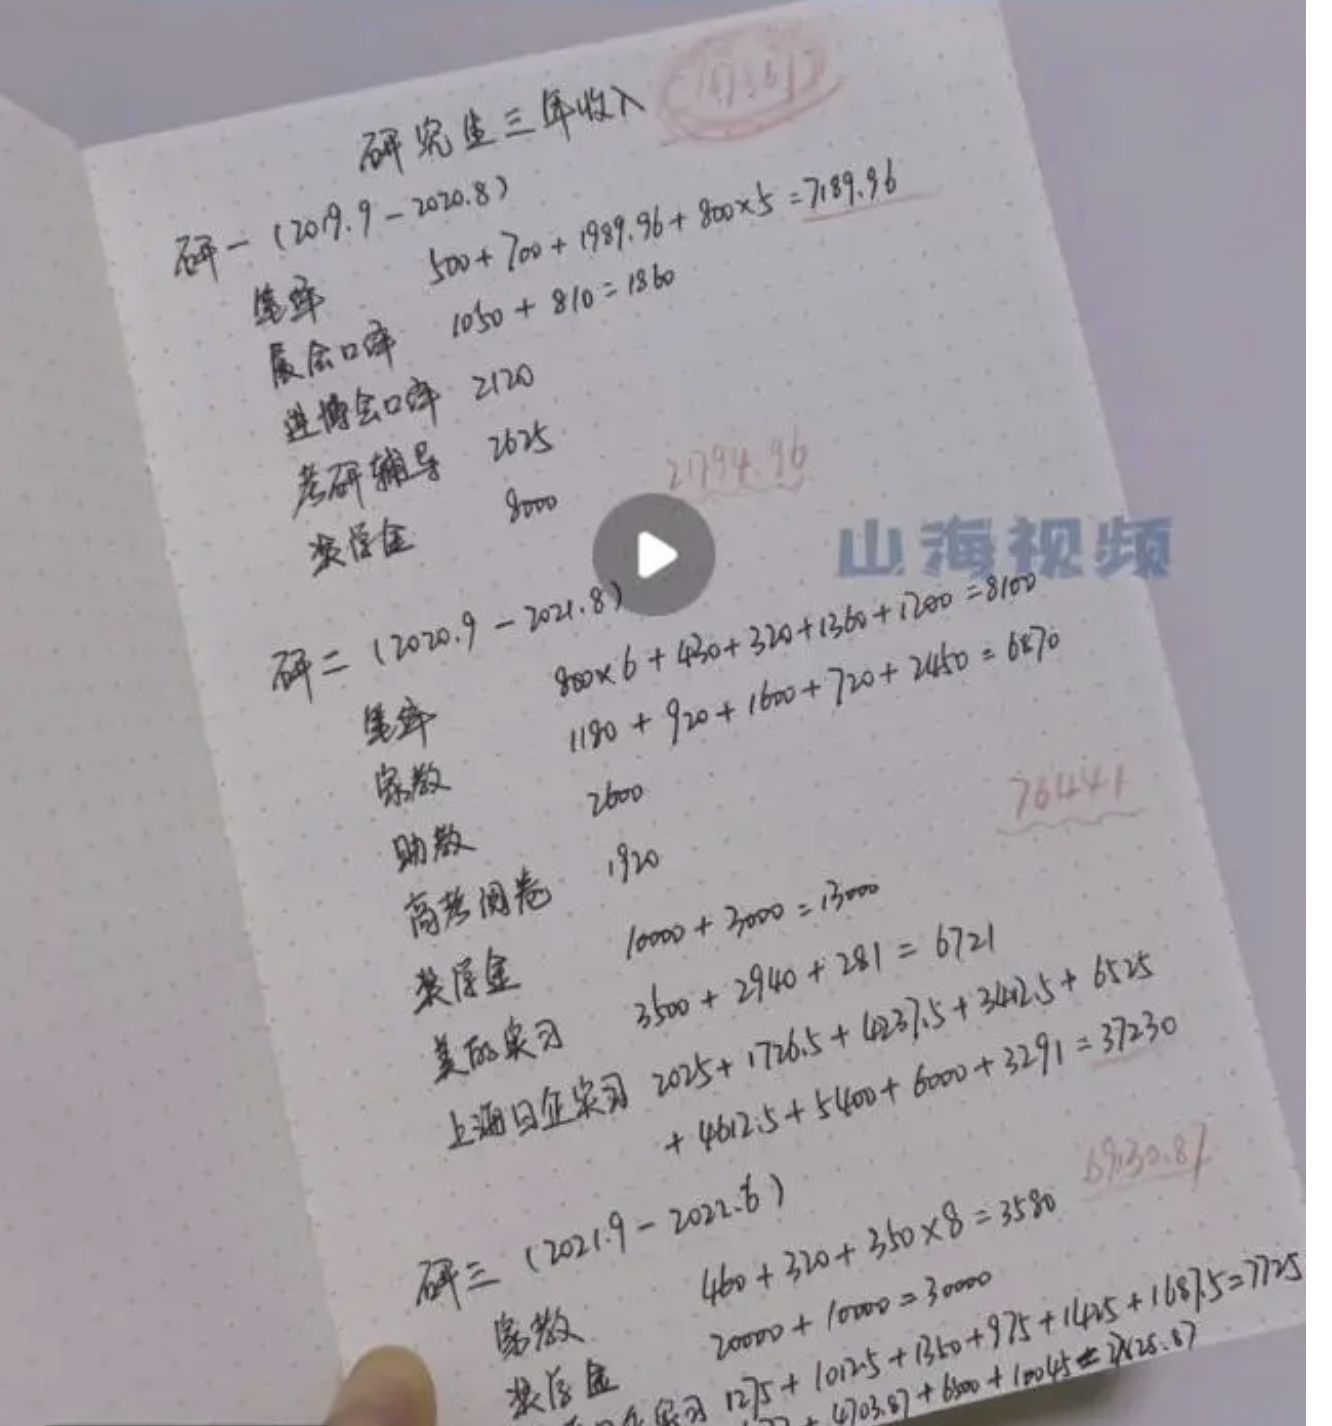 研究生三年收入
研一(2019.9-2020.8)
笔译 500+700+1989.96+800×5=7189.96
展会口译 1050+810=1860
进博会口译 2120
考研辅导 2625
奖学金 8000
21794.96
山海视频
研二(2020.9-2021.8)
笔译 800×6+430+320+1360+1200=8100
家教 1180+920+1600+720+2450=6870
助教 2600
高考阅卷 1920
76441
奖学金 10000+3000=13000
美的实习 3500+2940+281=6721
上海日企实习 2025+1726.5+4237.5+3412.5+6525
+4612.5+5400+6000+3291=37230
研三(2021.9-2022.6)
家教 460+320+350×8=3580
奖学金 20000+10000=30000
实习 1275+1012.5+1350+975+1425+1687.5=7725
+4703.87+6500+10045=